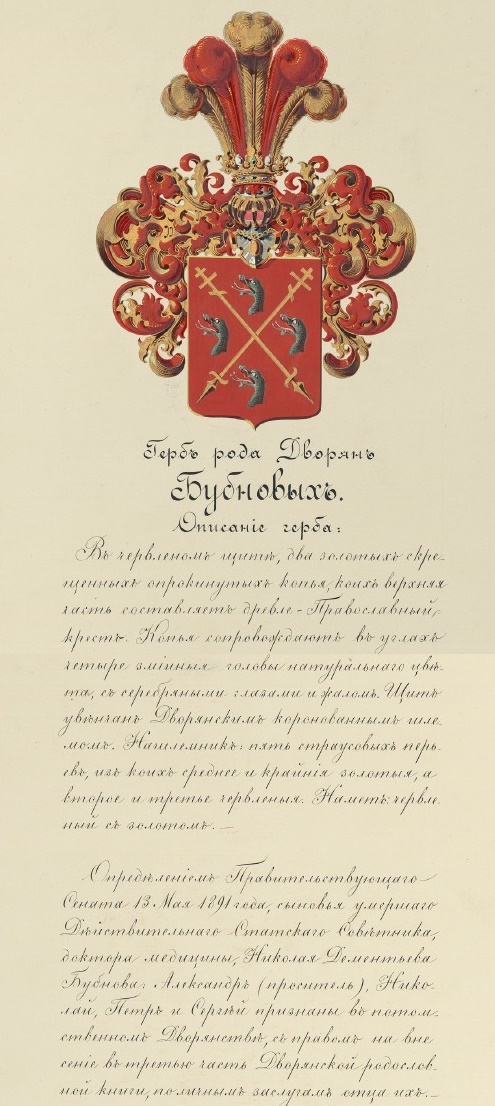 Гербъ рода Дворянъ
Бубновыхъ.
Описаніе герба:
Въ червленомъ щитѣ, два золотыхъ скре-
щенныхъ опрокинутыхъ копья, коихъ верхняя
часть составляетъ древле-Православный
крестъ. Копья сопровождаютъ въ углахъ
четыре змѣиныя головы натуральнаго цвѣ-
та, съ серебряными глазами и жаломъ. Щитъ
увѣнчанъ Дворянскимъ коронованнымъ шле-
момъ. Нашлемникъ: пять страусовыхъ перь-
евъ, изъ коихъ среднее и крайнія золотыя, а
второе и третье червленыя. Наметъ: червле
ный съ золотомъ. —
Опредѣленіемъ Правительствующаго
Сената 13 Мая 1891 года, сыновья умершаго
Дѣйствительнаго Статскаго Совѣтника,
доктора медицины, Николая Дементьева
Бубнова: Александръ (проситель), Нико-
лай, Петръ и Сергѣй признаны въ потом-
ственномъ Дворянствѣ, съ правомъ на вне
сеніе въ третью часть Дворянской родослов-
ной книги, по личнымъ заслугамъ отца ихъ. —